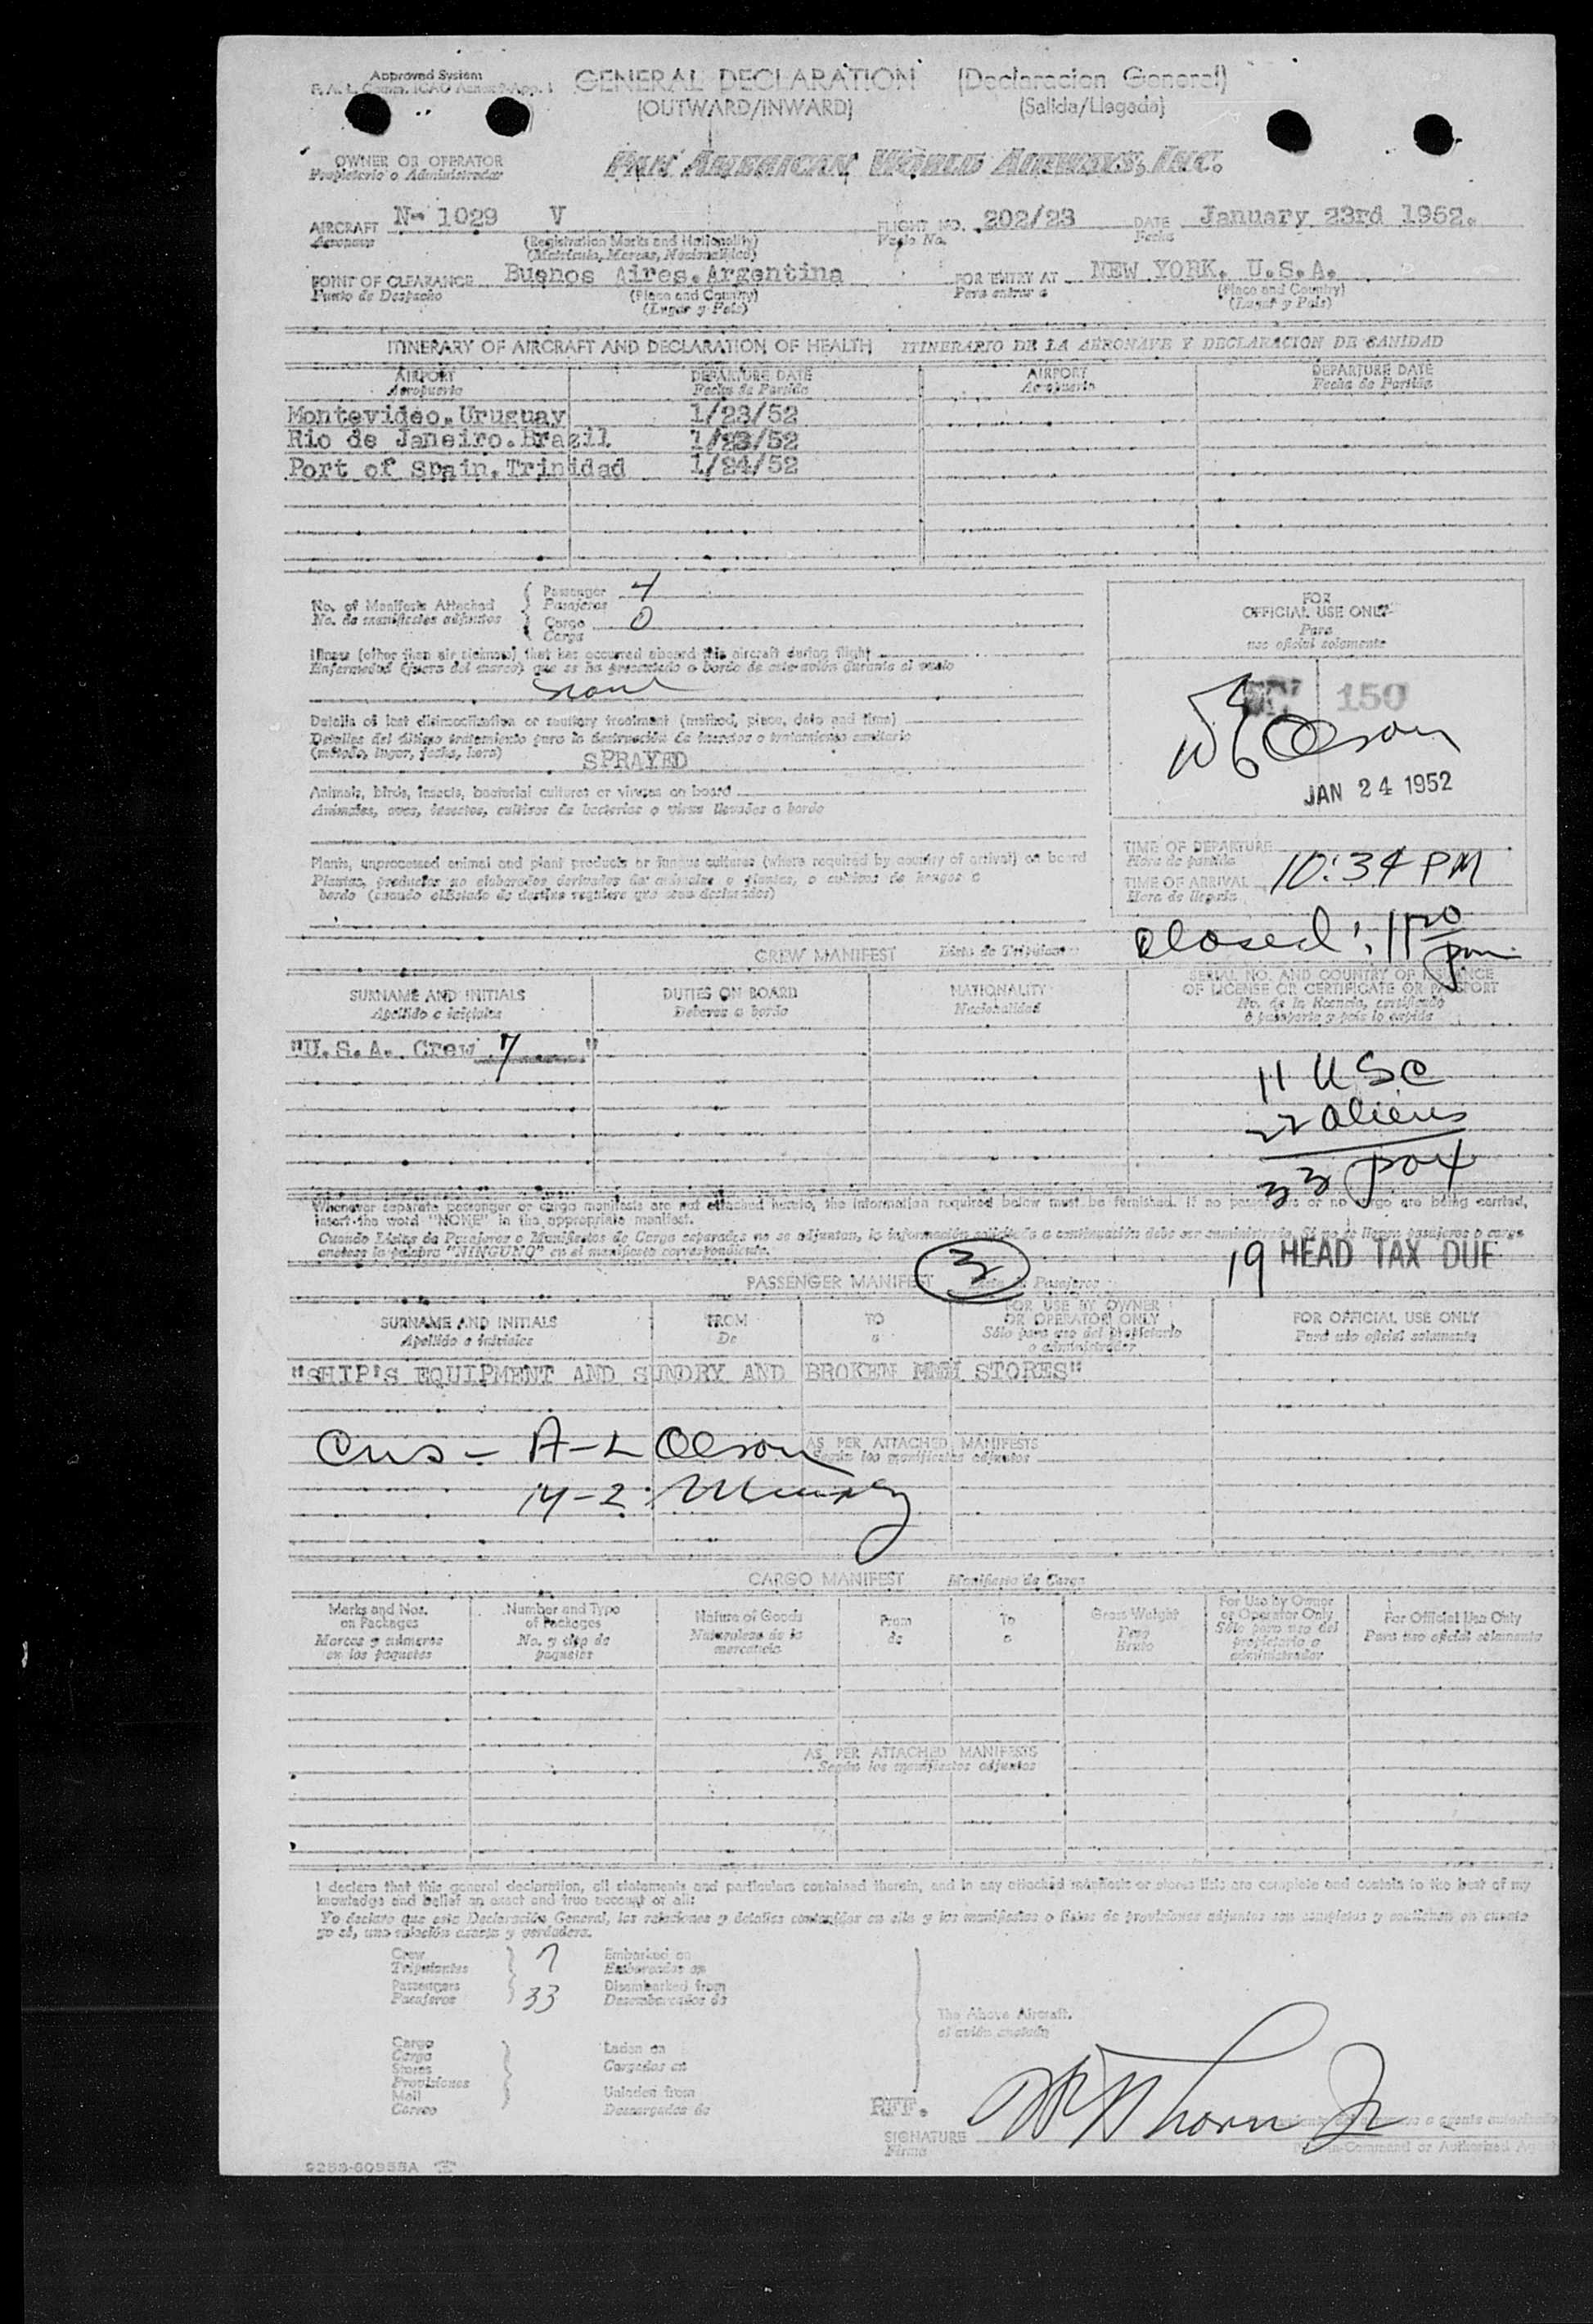 Approved System
GENERAL DECLARATION (Declaracion General)
(OUTWARD/INWARD) (Salida/Llegada)
OWNER OR OPERATOR
Propietario o Administrador
PAN AMERICAN WORLD AIRWAYS, INC.
AIRCRAFT N- 1029 V FLIGHT NO. 202/23 DATE January 23rd 1952.
Aeronave (Registration Marks and Nationality) Vuelo No. Fecha
(Matricula, Marcas, Nacionalidad)
POINT OF CLEARANCE Buenos Aires.Argentina FOR ENTRY AT NEW YORK. U.S.A.
Punto de Despacho (Place and Country) Para entrar a (Place and Country)
(Lugar y País) (Lugar y País)
ITINERARY OF AIRCRAFT AND DECLARATION OF HEALTH ITINERARIO DE LA AERONAVE Y DECLARACION DE SANIDAD
AIRPORT DEPARTURE DATE AIRPORT DEPARTURE DATE
Aeropuerto Fecha de Partida Aeropuerto Fecha de Partida
Montevideo.Uruguay 1/23/52
Rio de Janeiro.Brazil 1/23/52
Port of Spain.Trinidad 1/24/52
No. of Manifests Attached Passenger 4
No. de manifiestos adjuntos Pasajeros
Cargo 0
Carga
FOR
OFFICIAL USE ONLY
Para
uso oficial solamente
Illness (other than air sickness) that has occurred aboard this aircraft during flight
Enfermedad (fuera del mareo) que se ha presentado a bordo de este avión durante el vuelo
None
150
Olson
JAN 24 1952
Details of last disinsectization or sanitary treatment (method, place, date and time)
Detalles del último tratamiento para la destrucción de insectos o tratamiento sanitario
(método, lugar, fecha, hora)
SPRAYED
Animals, birds, insects, bacterial cultures or viruses on board
Animales, aves, insectos, cultivos de bacterias o virus llevados a bordo
Plants, unprocessed animal and plant products or fungus cultures (where required by country of arrival) on board
Plantas, productos no elaborados derivados de animales o plantas, o cultivos de hongos a
bordo (cuando el Estado de destino requiere que sean declarados)
TIME OF DEPARTURE
Hora de partida
TIME OF ARRIVAL 10:34 PM
Hora de llegada
Closed: 11 20 pm
CREW MANIFEST Lista de Tripulantes
SURNAME AND INITIALS DUTIES ON BOARD NATIONALITY SERIAL NO. AND COUNTRY OF ISSUANCE
OF LICENSE OR CERTIFICATE OR PASSPORT
Apellido e iniciales Deberes a bordo Nacionalidad No. de la licencia, certificado
o pasaporte y país lo expide
"U.S.A. Crew 7 "
11 USC
22 aliens
33 pax
Whenever separate passenger or cargo manifests are not attached hereto, the information required below must be furnished. If no passengers or no cargo are being carried,
insert the word "NONE" in the appropriate manifest.
Cuando Listas de Pasajeros o Manifiestos de Carga separados no se adjuntan, la información solicitada a continuación debe ser suministrada. Si no se llevan pasajeros o carga
anótese la palabra "NINGUNO" en el manifiesto correspondiente.
19 HEAD TAX DUE
PASSENGER MANIFEST 3 Lista de Pasajeros
SURNAME AND INITIALS FROM TO FOR USE BY OWNER FOR OFFICIAL USE ONLY
OR OPERATOR ONLY
Apellido e iniciales De a Sólo para uso del propietario Para uso oficial solamente
o administrador
"SHIP'S EQUIPMENT AND SUNDRY AND BROKEN STORES"
A-L Olson
AS PER ATTACHED MANIFESTS
Según los manifiestos adjuntos
CARGO MANIFEST Manifiesto de Carga
Marks and Nos. Number and Type Nature of Goods From To Gross Weight For Use by Owner For Official Use Only
on Packages of Packages or Operator Only
Marcas y números No. y tipo de Naturaleza de la de a Peso Sólo para uso del Para uso oficial solamente
en los paquetes paquetes mercancía Bruto propietario o
administrador
AS PER ATTACHED MANIFESTS
Según los manifiestos adjuntos
I declare that this general declaration, all statements and particulars contained therein, and in any attached manifests or stores lists are complete and contain to the best of my
knowledge and belief an exact and true account of all:
Yo declaro que esta Declaración General, las relaciones y detalles contenidos en ella y los manifiestos o listas de provisiones adjuntos son completos y contienen en cuanto
yo sé, una relación exacta y verdadera.
Crew 7 Embarked on
Tripulantes Embarcados en
Passengers 33 Disembarked from
Pasajeros Desembarcados de
The Above Aircraft.
el avión anotado
Cargo Laden on
Carga
Stores Cargados en
Provisiones
Mail Unladed from
Correo Descargados de
RTT.
SIGNATURE
Firma
9253-60955A